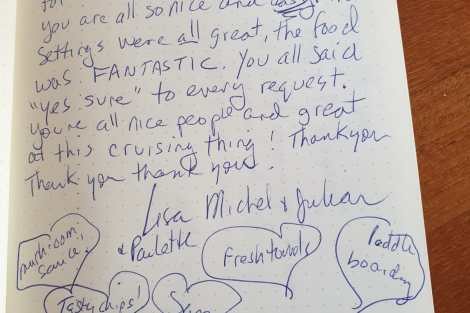 for
you are all so nice and
settings were all great, the food
was FANTASTIC. You all said
"yes sure" to every request.
You're all nice people and great
at this cruising thing! Thankyou
Thank you thank you!
Lisa Michel & Julian
& Paulette
mushroom
sauce!
Fresh towels
Paddle
boarding
Tasty chips!